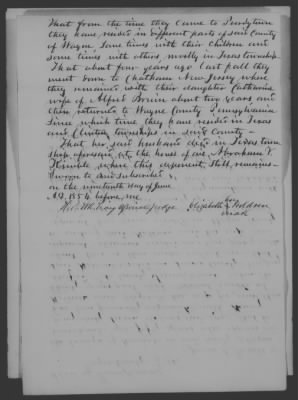 That from the time they came to
they have resided in different parts of said County
of Wayne, Some times with their children and
some times with others, mostly in Texas township.
That about four years ago last fall they
went down to Chatham New-Jersey where
they remained with their daughter Catharine
wife of Alfred Bruin about two years and
then returned to Wayne County Pennsylvania
Since which time they have resided in Texas
and Clinton townships in said County -
That her said husband died in Texas town
ship aforesaid at the house of one Abraham V.
where this deponent still remains -
Sworn to and subscribed
on the nineteenth day of June
A.D. 1854 before me
Elizabeth her
mark